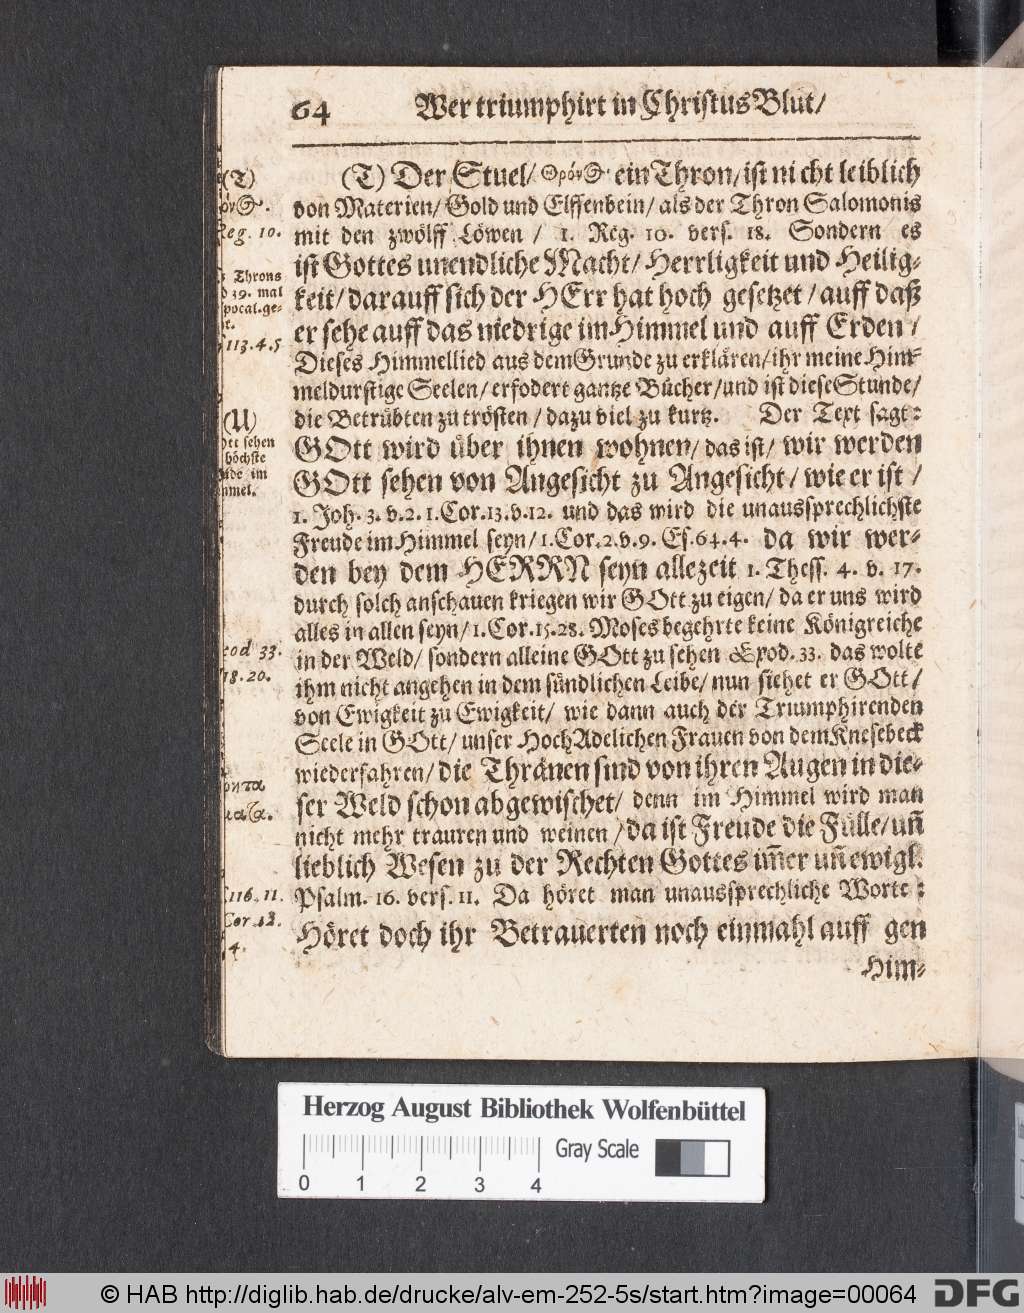 64 Wer triumphirt in Christus Blut/
(T) Der Stuel/ Θρόνος ein Thron/ ist nicht leiblich
von Materien/ Gold und Elffenbein/ als der Thron Salomonis
mit den zwölff Löwen / 1. Reg. 10. vers. 18. Sondern es
ist Gottes unendliche Macht/ Herrligkeit und Heilig-
keit/ darauff sich der HErr hat hoch gesetzet / auff daß
er sehe auff das niedrige im Himmel und auff Erden /
Dieses Himmellied aus dem Grunde zu erklären/ ihr meine Him-
meldurstige Seelen/ erfodert gantze Bücher/ und ist diese Stunde/
die Betrübten zu trösten / dazu viel zu kurtz. Der Text sagt:
GOtt wird über ihnen wohnen/ das ist/ wir werden
GOtt sehen von Angesicht zu Angesicht/ wie er ist /
1. Joh. 3. v. 2. 1. Cor. 13. v. 12. und das wird die unaussprechlichste
Freude im Himmel seyn/ 1. Cor. 2. v. 9. Es. 64. 4. da wir wer-
den bey dem HERRN seyn allezeit 1. Thess. 4. v. 17.
durch solch anschauen kriegen wir GOtt zu eigen/ da er uns wird
alles in allen seyn/ 1. Cor. 15. 28. Moses begehrte keine Königreiche
in der Weld/ sondern alleine GOtt zu sehen Exod. 33. das wolte
ihm nicht angehen in dem sündlichen Leibe/ nun siehet er GOtt/
von Ewigkeit zu Ewigkeit/ wie dann auch der Triumphirenden
Seele in GOtt/ unser HochAdelichen Frauen von dem Knesebeck
wiederfahren/ die Thränen sind von ihren Augen in die-
ser Weld schon abgewischet/ denn im Himmel wird man
nicht mehr trauren und weinen / da ist Freude die Fülle/ uñ
lieblich Wesen zu der Rechten Gottes im̃er uñ ewigl.
Psalm. 16. vers. 11. Da höret man unaussprechliche Worte:
Höret doch ihr Betrauerten noch einmahl auff gen
Him-
(T)
Reg. 10.
Throns
39. mal
Apocal. ge-
113. 4. 5
(U)
sehen
höchste
im
33.
18. 20.
116. 11.
Cor 12.
4.
Herzog August Bibliothek Wolfenbüttel
0 1 2 3 4
Gray Scale
© HAB http://diglib.hab.de/drucke/alv-em-252-5s/start.htm?image=00064
DFG